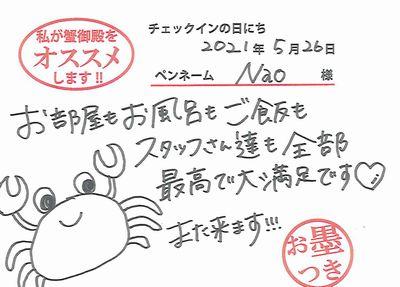 私が蟹御殿を
オススメ
します!!
チェックインの日にち
2021年5月26日
ペンネーム Nao 様
お部屋もお風呂もご飯も
スタッフさん達も全部
最高で大満足です♡
また来ます!!!
お墨
つき